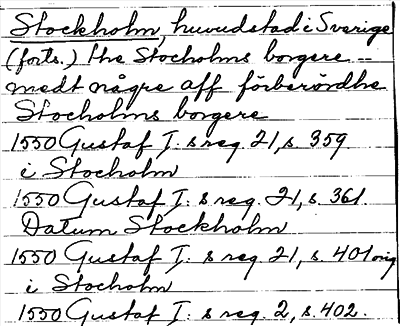 Stockholm, huvudstad i Sverige
(forts.) the Stocholms borgere --
medt någre aff förberördhe
Stocholms borgere
1550 Gustaf I: s reg. 21, s. 359
i Stocholm
1550 Gustaf I: s reg. 21, s. 361.
Datum Stockholm
1550 Gustaf I: s reg. 21, s. 401 orig
i Stocholm
1550 Gustaf I: s reg. 2, s. 402.